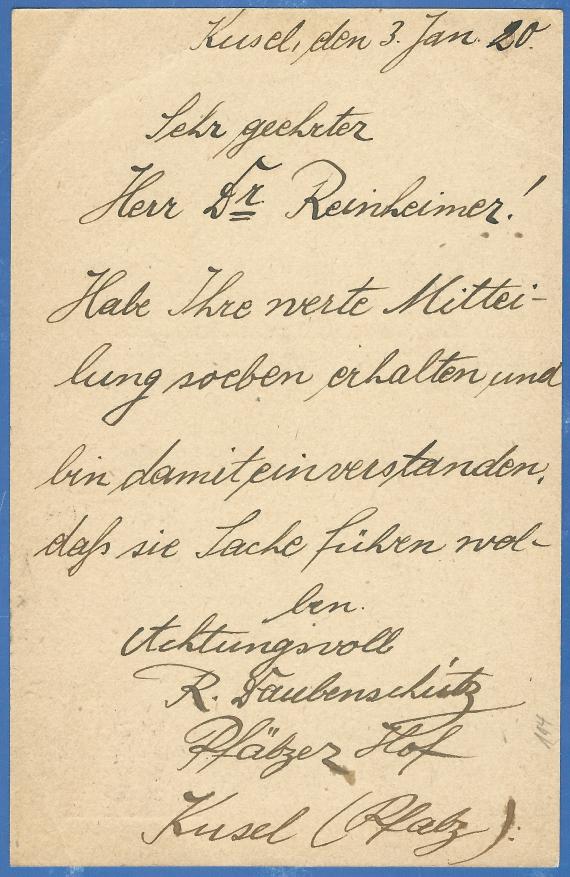 Kusel, den 3. Jan. 20.
Sehr geehrter
Herr Dr Reinheimer!
Habe Ihre werte Mittei-
lung soeben erhalten und
bin damit einverstanden,
daß sie Sache führen wol-
len.
Achtungsvoll
R. Daubenschütz
Pfälzer Hof
Kusel (Pfalz).
104